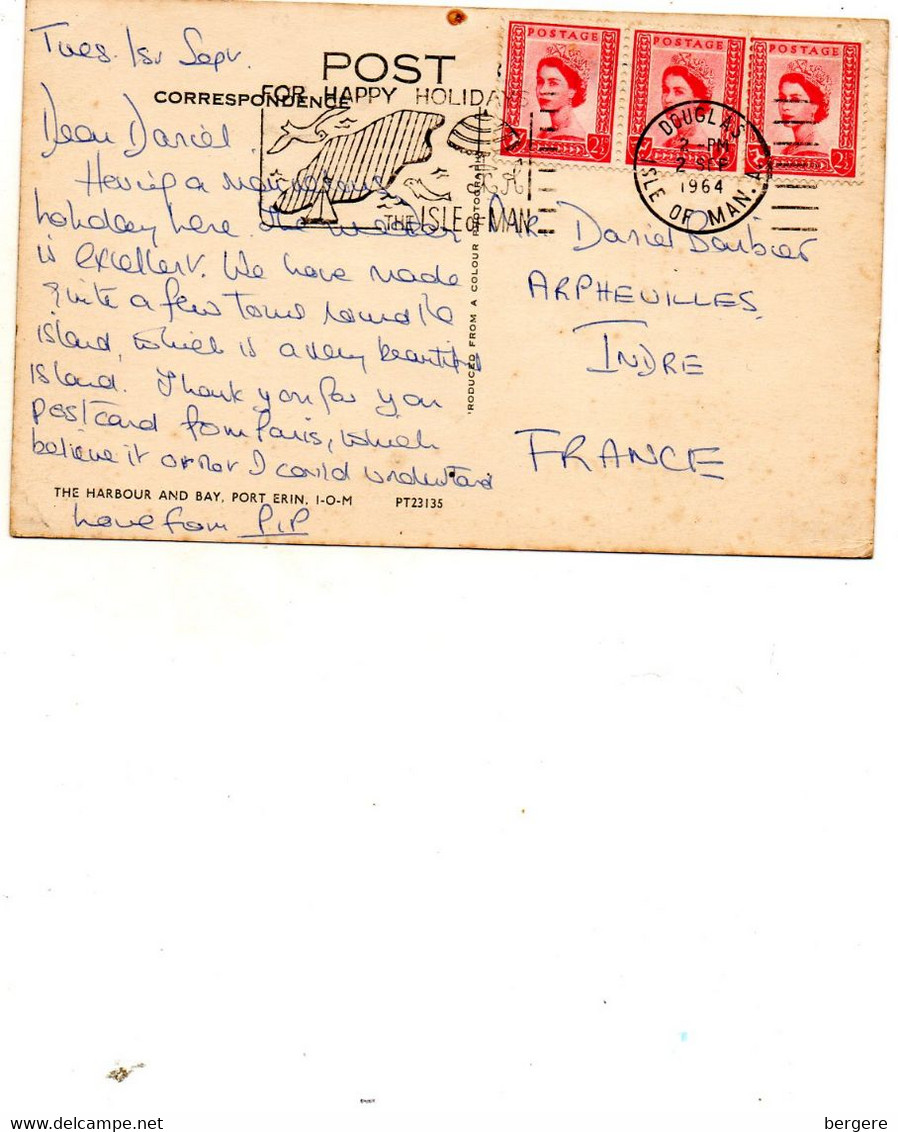 Tues. 1st Sept.
POST
CORRESPONDENCE
FOR HAPPY HOLIDAYS
THE ISLE OF MAN
POSTAGE POSTAGE POSTAGE
2½ 2½
DOUGLAS
2 - PM
2 SEP
1964
ISLE OF MAN. A
Dear Daniel.
Having a marvellous
holiday here. The weather
is excellent. We have made
quite a few tours round the
island, which is a very beautiful
island. Thank you for you
postcard fom Paris, which
believe it or not I could understand
love from PIP
THE HARBOUR AND BAY, PORT ERIN. I-O-M PT23135
RODUCED FROM A COLOUR PHOTOGRAPH
Daniel Barbier
ARPHEUILLES,
INDRE
FRANCE
bergere